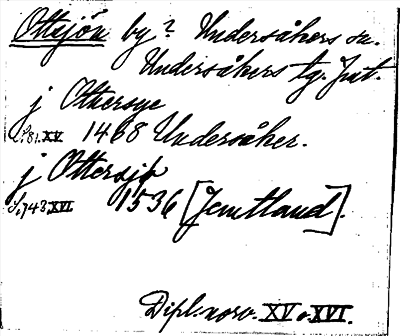 Ottsjön by? Undersåkers sn.
Undersåkers tg. Jmt.
j Ottersye
S.81.XV 1468 Undersåker.
j Ottersjø
S.743.XVI 1536 [Jemtland].
Dipl. norv. XV o XVI.